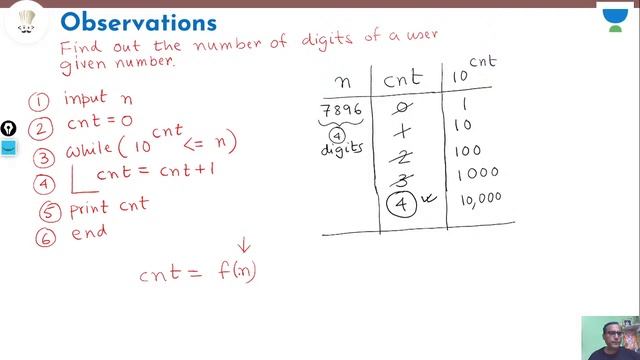 Observations
Find out the number of digits of a user
given number.
① input n
② cnt = 0
③ while ( 10^cnt <= n )
④ cnt = cnt + 1
⑤ print cnt
⑥ end
cnt = f(n)
n cnt 10^cnt
7896 0 1
④ 1 10
digits 2 100
3 1000
4 10,000